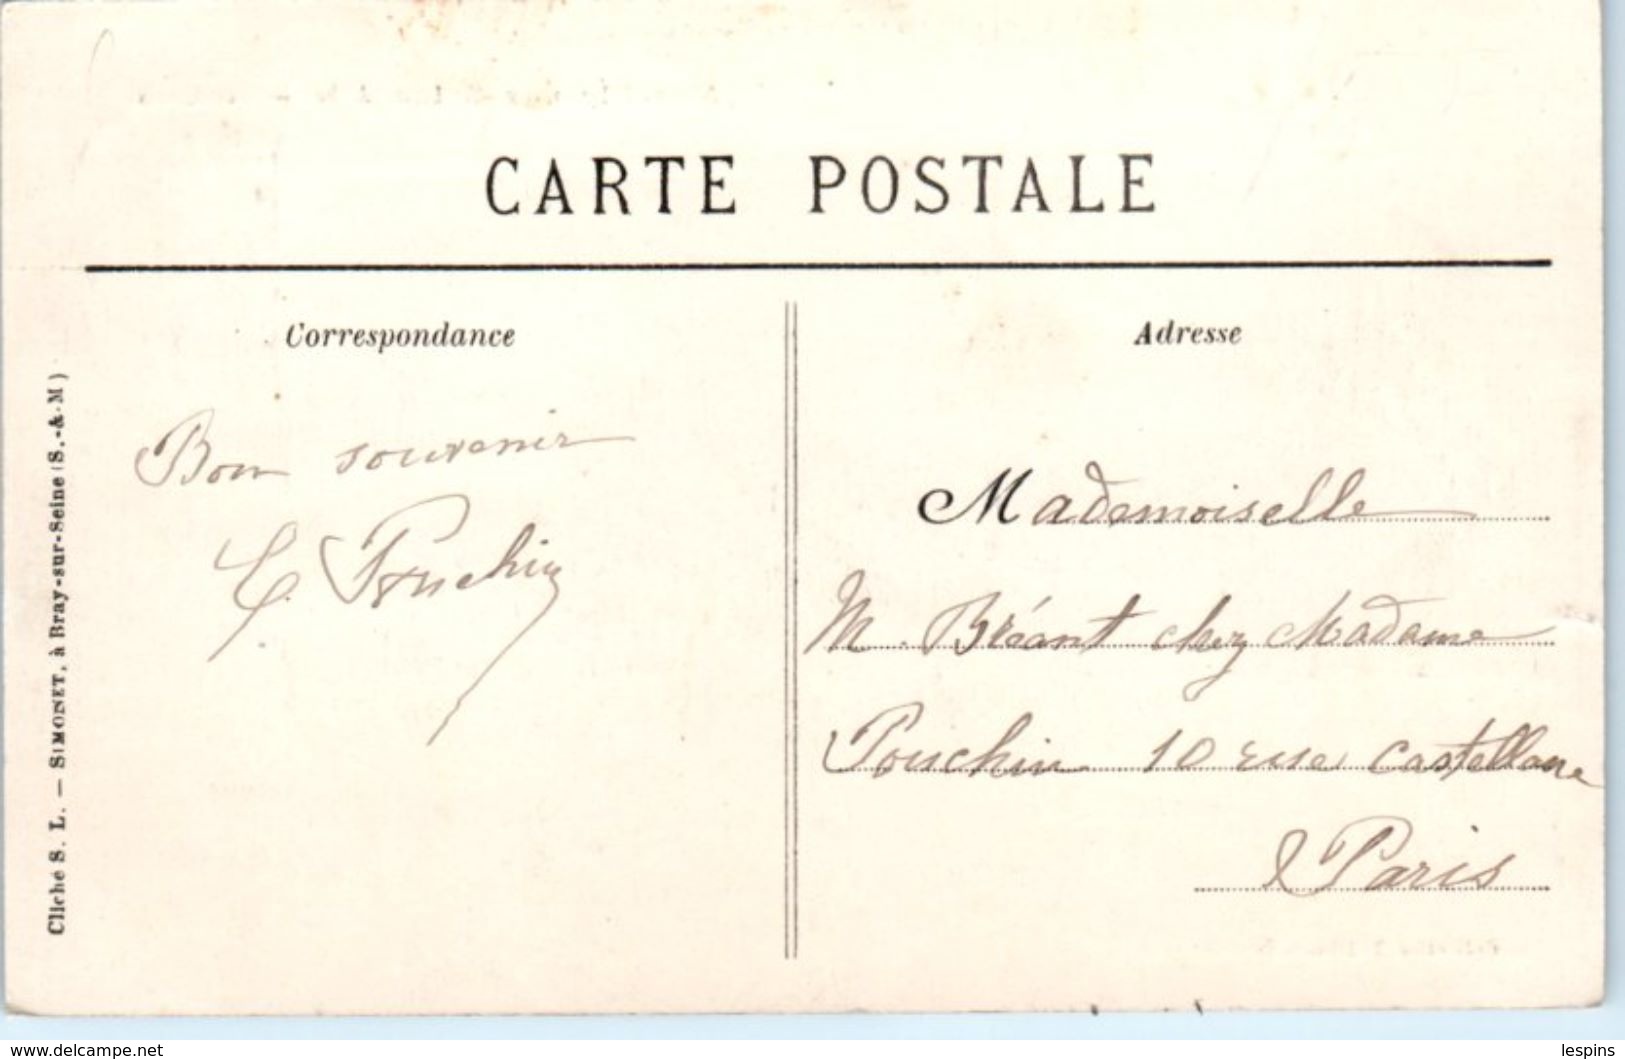 CARTE POSTALE
Correspondance
Adresse
Bon souvenir
E. Pouchin
Mademoiselle
M. Bréant chez Madame
Pouchin 10 rue Castellane
Paris
Cliché S. L. — SIMONET, à Bray-sur-Seine (S.-&-M)
www.delcampe.net
lespins